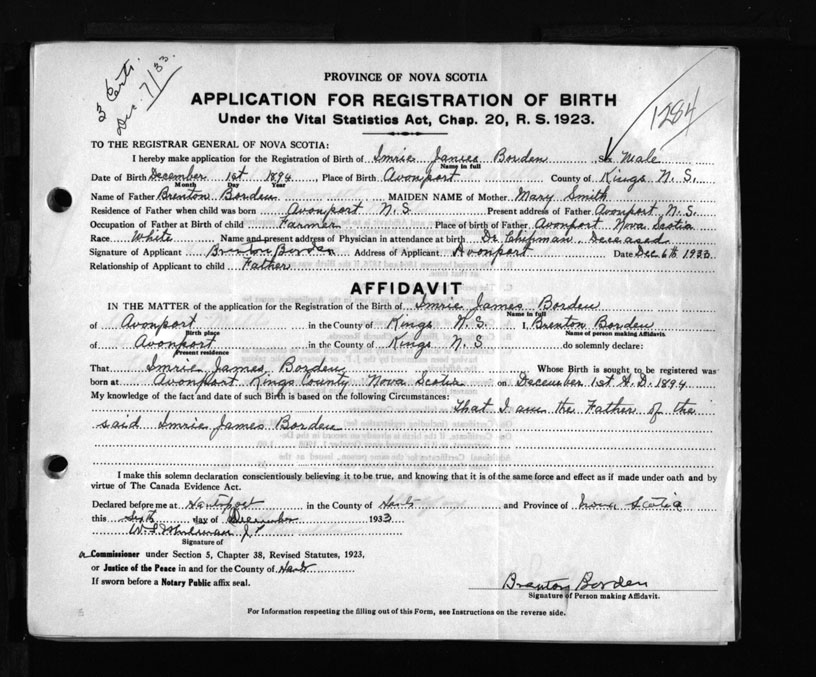 3 Certs.
Dec. 7/33.
1284
PROVINCE OF NOVA SCOTIA
APPLICATION FOR REGISTRATION OF BIRTH
Under the Vital Statistics Act, Chap. 20, R. S. 1923.
TO THE REGISTRAR GENERAL OF NOVA SCOTIA:
I hereby make application for the Registration of Birth of Imrie James Borden Sex Male
Name in full
Date of Birth December 1st 1894 Place of Birth Avonport County of Kings N. S.
Month Day Year
Name of Father Brenton Borden MAIDEN NAME of Mother Mary Smith
Residence of Father when child was born Avonport N. S. Present address of Father Avonport N. S.
Occupation of Father at Birth of child Farmer Place of birth of Father Avonport Nova Scotia
Race White Name and present address of Physician in attendance at birth Dr Chipman, Deceased
Signature of Applicant Brenton Borden Address of Applicant Avonport Date Dec 6th 1933
Relationship of Applicant to child Father
AFFIDAVIT
IN THE MATTER of the application for the Registration of the Birth of Imrie James Borden
Name in full
of Avonport in the County of Kings N. S. I, Brenton Borden
Birth place Name of person making Affidavit.
of Avonport in the County of Kings N. S. do solemnly declare:
Present residence
That Imrie James Borden Whose Birth is sought to be registered was
born at Avonport Kings County Nova Scotia on December 1st A. D. 1894
My knowledge of the fact and date of such Birth is based on the following Circumstances:
That I am the Father of the
said Imrie James Borden
I make this solemn declaration conscientiously believing it to be true, and knowing that it is of the same force and effect as if made under oath and by
virtue of The Canada Evidence Act.
Declared before me at Hantsport in the County of Hants and Province of Nova Scotia
this Sixth day of December 1933
Signature of
a Commissioner under Section 5, Chapter 38, Revised Statutes, 1923,
or Justice of the Peace in and for the County of Hants
If sworn before a Notary Public affix seal.
Brenton Borden
Signature of Person making Affidavit.
For Information respecting the filling out of this Form, see Instructions on the reverse side.